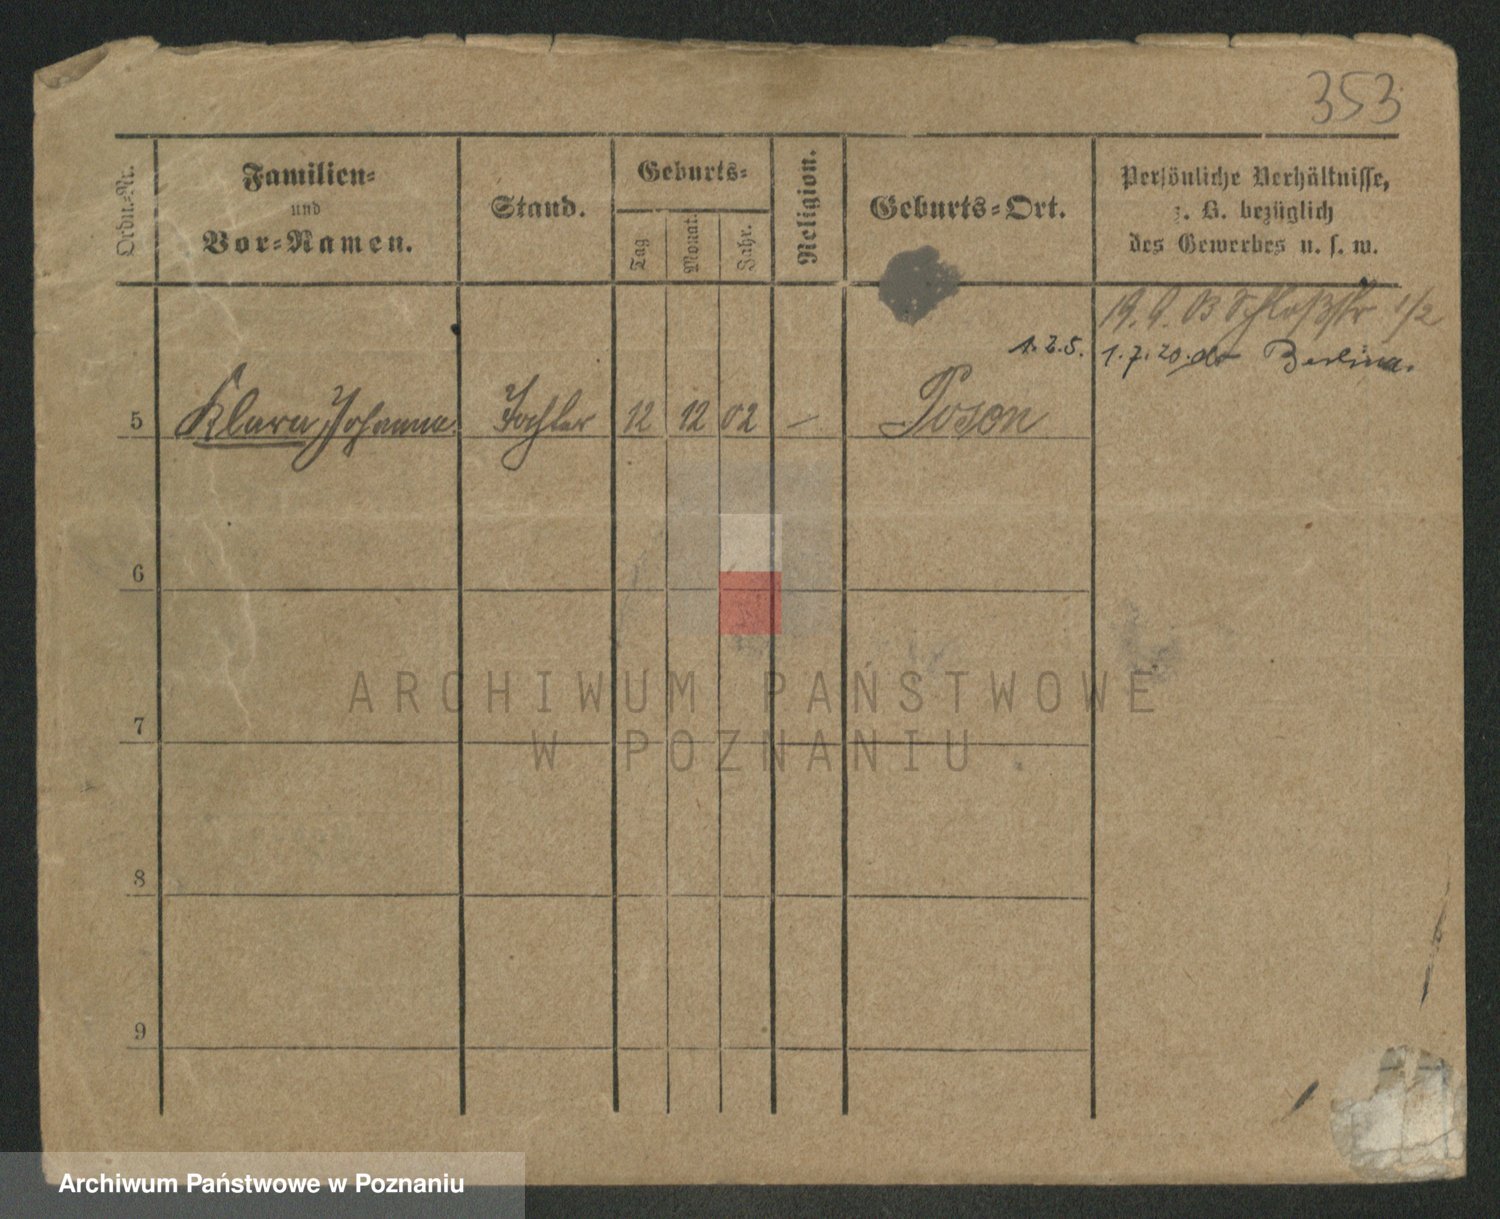 353
Ordn.-Nr.
Familien-
und
Vor-Namen.
Stand.
Geburts-
Tag
Monat.
Jahr.
Religion.
Geburts-Ort.
Persönliche Verhältnisse,
z. B. bezüglich
des Gewerbes u. s. w.
19. 9. 03 Schloßstr 1/2
1. 7. 20. do Berlin
5 Klara Johanna Tochter 12 12 02 — Posen
6
7
8
9
ARCHIWUM PAŃSTWOWE
W POZNANIU
Archiwum Państwowe w Poznaniu